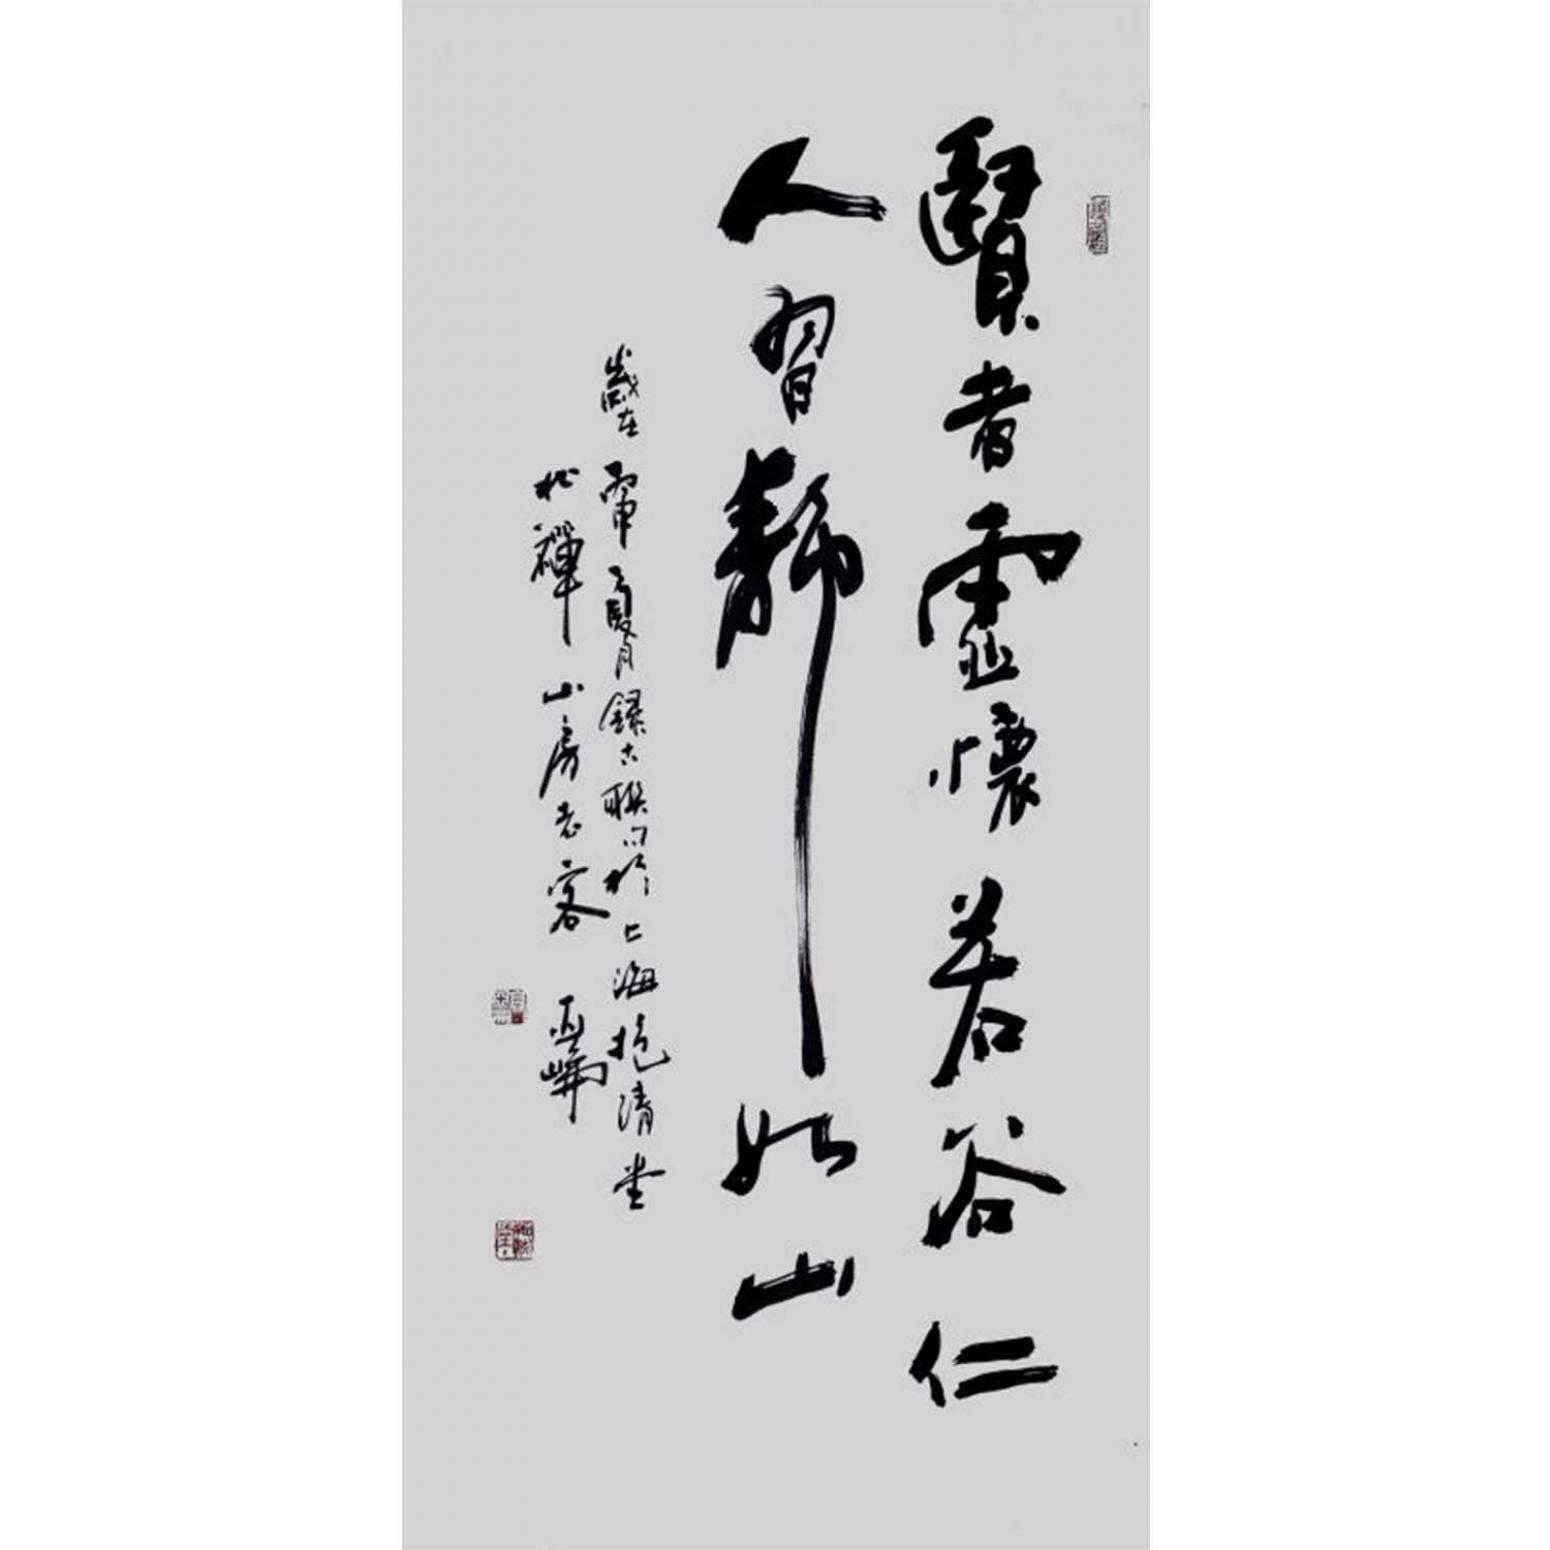 賢者虛懷若谷仁
人習靜如山
歲在丙申夏月錄古聯句於上海抱清堂
禪山房老客